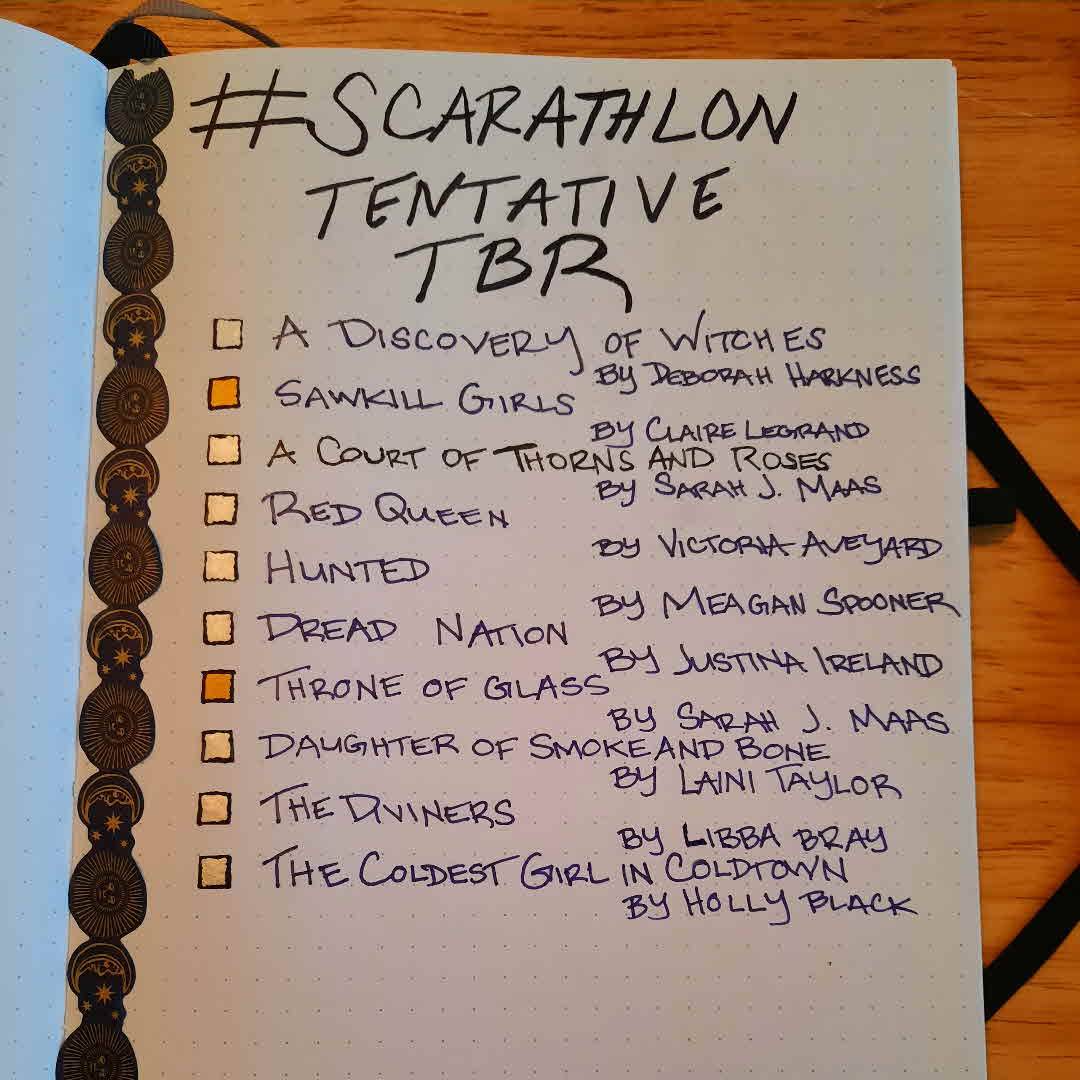 #SCARATHLON
TENTATIVE
TBR
A DISCOVERY OF WITCHES
BY DEBORAH HARKNESS
SAWKILL GIRLS
BY CLAIRE LEGRAND
A COURT OF THORNS AND ROSES
BY SARAH J. MAAS
RED QUEEN
BY VICTORIA AVEYARD
HUNTED
BY MEAGAN SPOONER
DREAD NATION
BY JUSTINA IRELAND
THRONE OF GLASS
BY SARAH J. MAAS
DAUGHTER OF SMOKE AND BONE
BY LAINI TAYLOR
THE DIVINERS
BY LIBBA BRAY
THE COLDEST GIRL IN COLDTOWN
BY HOLLY BLACK